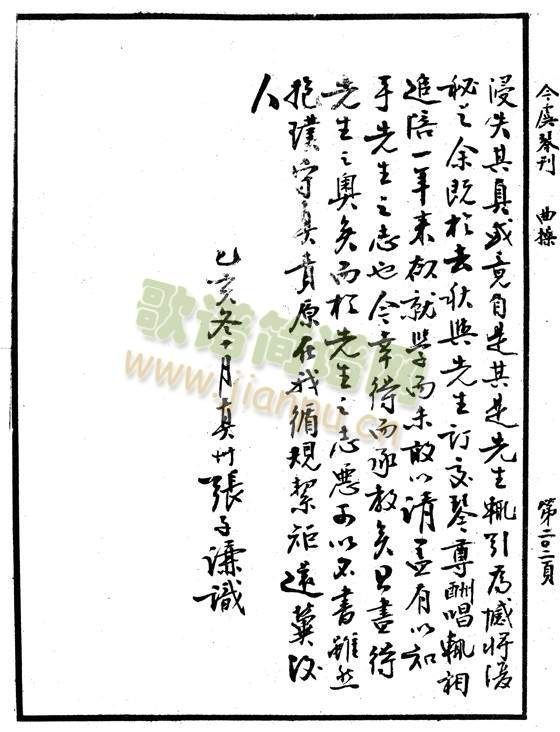 今虞琴刊　曲操
第二〇二頁
浸失其真或竟自是其是先生輒引為憾將復
秘之余既於去秋與先生訂交琴尊酬唱輒相
追陪一年來欲就學而未敢以請蓋有以知
乎先生之志也今幸得而承教矣且盡得
先生之奧矣而於先生之志惡可以不書雖然
抱璞守真責原在我循規絜矩遠冀後
人
乙亥冬十月真州張子謙識
歌谱简谱网
www.jianpu.cn